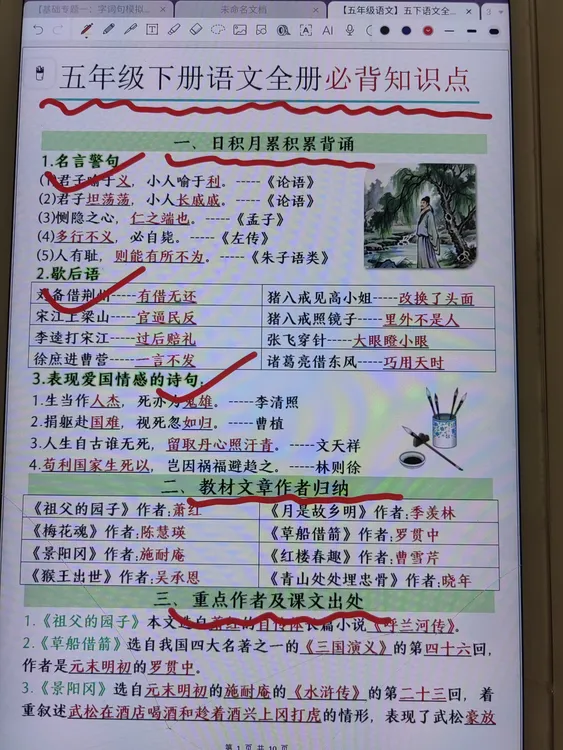 【基础专题一：学词句模拟...
未命名文档
【五年级语文】五下语文全...
3
AI
五年级下册语文全册必背知识点
一、日积月累积累背诵
1.名言警句
(1)君子喻于义，小人喻于利。----《论语》
(2)君子坦荡荡，小人长戚戚。----《论语》
(3)恻隐之心，仁之端也。-----《孟子》
(4)多行不义，必自毙。----《左传》
(5)人有耻，则能有所不为。----《朱子语类》
2.歇后语
刘备借荆州-----有借无还
猪八戒见高小姐-----改换了头面
宋江上梁山-----官逼民反
猪八戒照镜子----里外不是人
李逵打宋江-----过后赔礼
张飞穿针-----大眼瞪小眼
徐庶进曹营-----一言不发
诸葛亮借东风-----巧用天时
3.表现爱国情感的诗句：
1.生当作人杰，死亦为鬼雄。----李清照
2.捐躯赴国难，视死忽如归。----曹植
3.人生自古谁无死，留取丹心照汗青。-----文天祥
4.苟利国家生死以，岂因祸福避趋之。----林则徐
二、教材文章作者归纳
《祖父的园子》作者:萧红
《月是故乡明》作者:季羡林
《梅花魂》作者:陈慧瑛
《草船借箭》作者:罗贯中
《景阳冈》作者:施耐庵
《红楼春趣》作者:曹雪芹
《猴王出世》作者:吴承恩
《青山处处埋忠骨》作者:晓年
三、重点作者及课文出处
1.《祖父的园子》本文选自萧红的自传体长篇小说《呼兰河传》。
2.《草船借箭》选自我国四大名著之一的《三国演义》的第四十六回，
作者是元末明初的罗贯中。
3.《景阳冈》选自元末明初的施耐庵的《水浒传》的第二十三回，着
重叙述武松在酒店喝酒和趁着酒兴上冈打虎的情形，表现了武松豪放
第 1 页 共 10 页